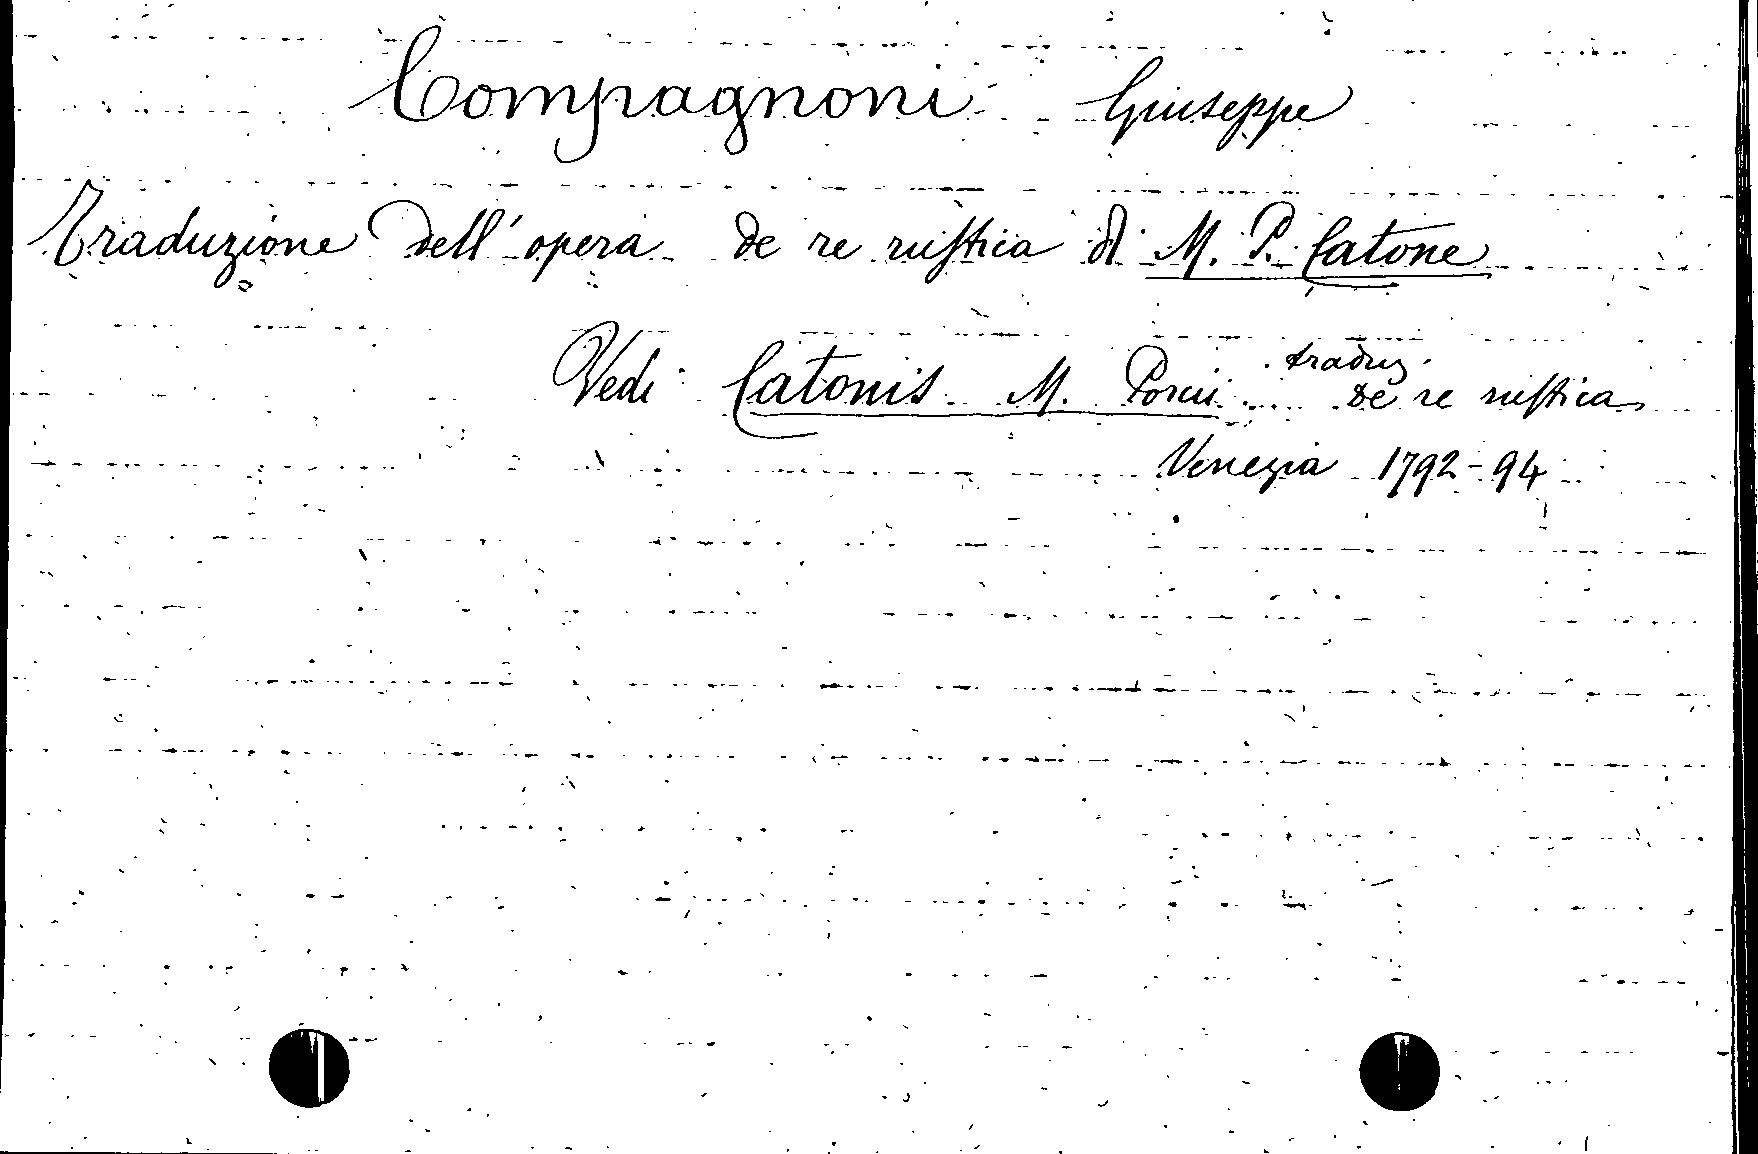 Compagnoni Giuseppe
Traduzione dell'opera de re rustica di M. P. Catone
Vedi Catonis M. Porcii traduz. de re rustica
Venezia 1792-94